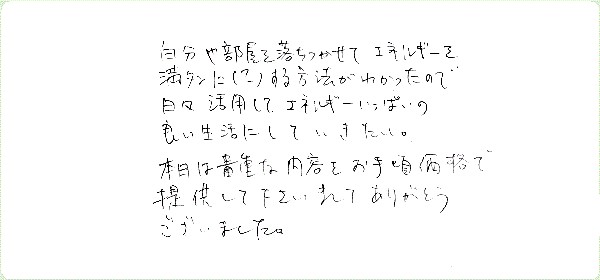 自分や部屋を落ちつかせて エネルギーを
満タンに(?)する方法がわかったので
日々 活用して エネルギーいっぱいの
良い生活にしていきたい。
本日は貴重な内容をお手頃価格で
提供して下さいましてありがとう
ございました。